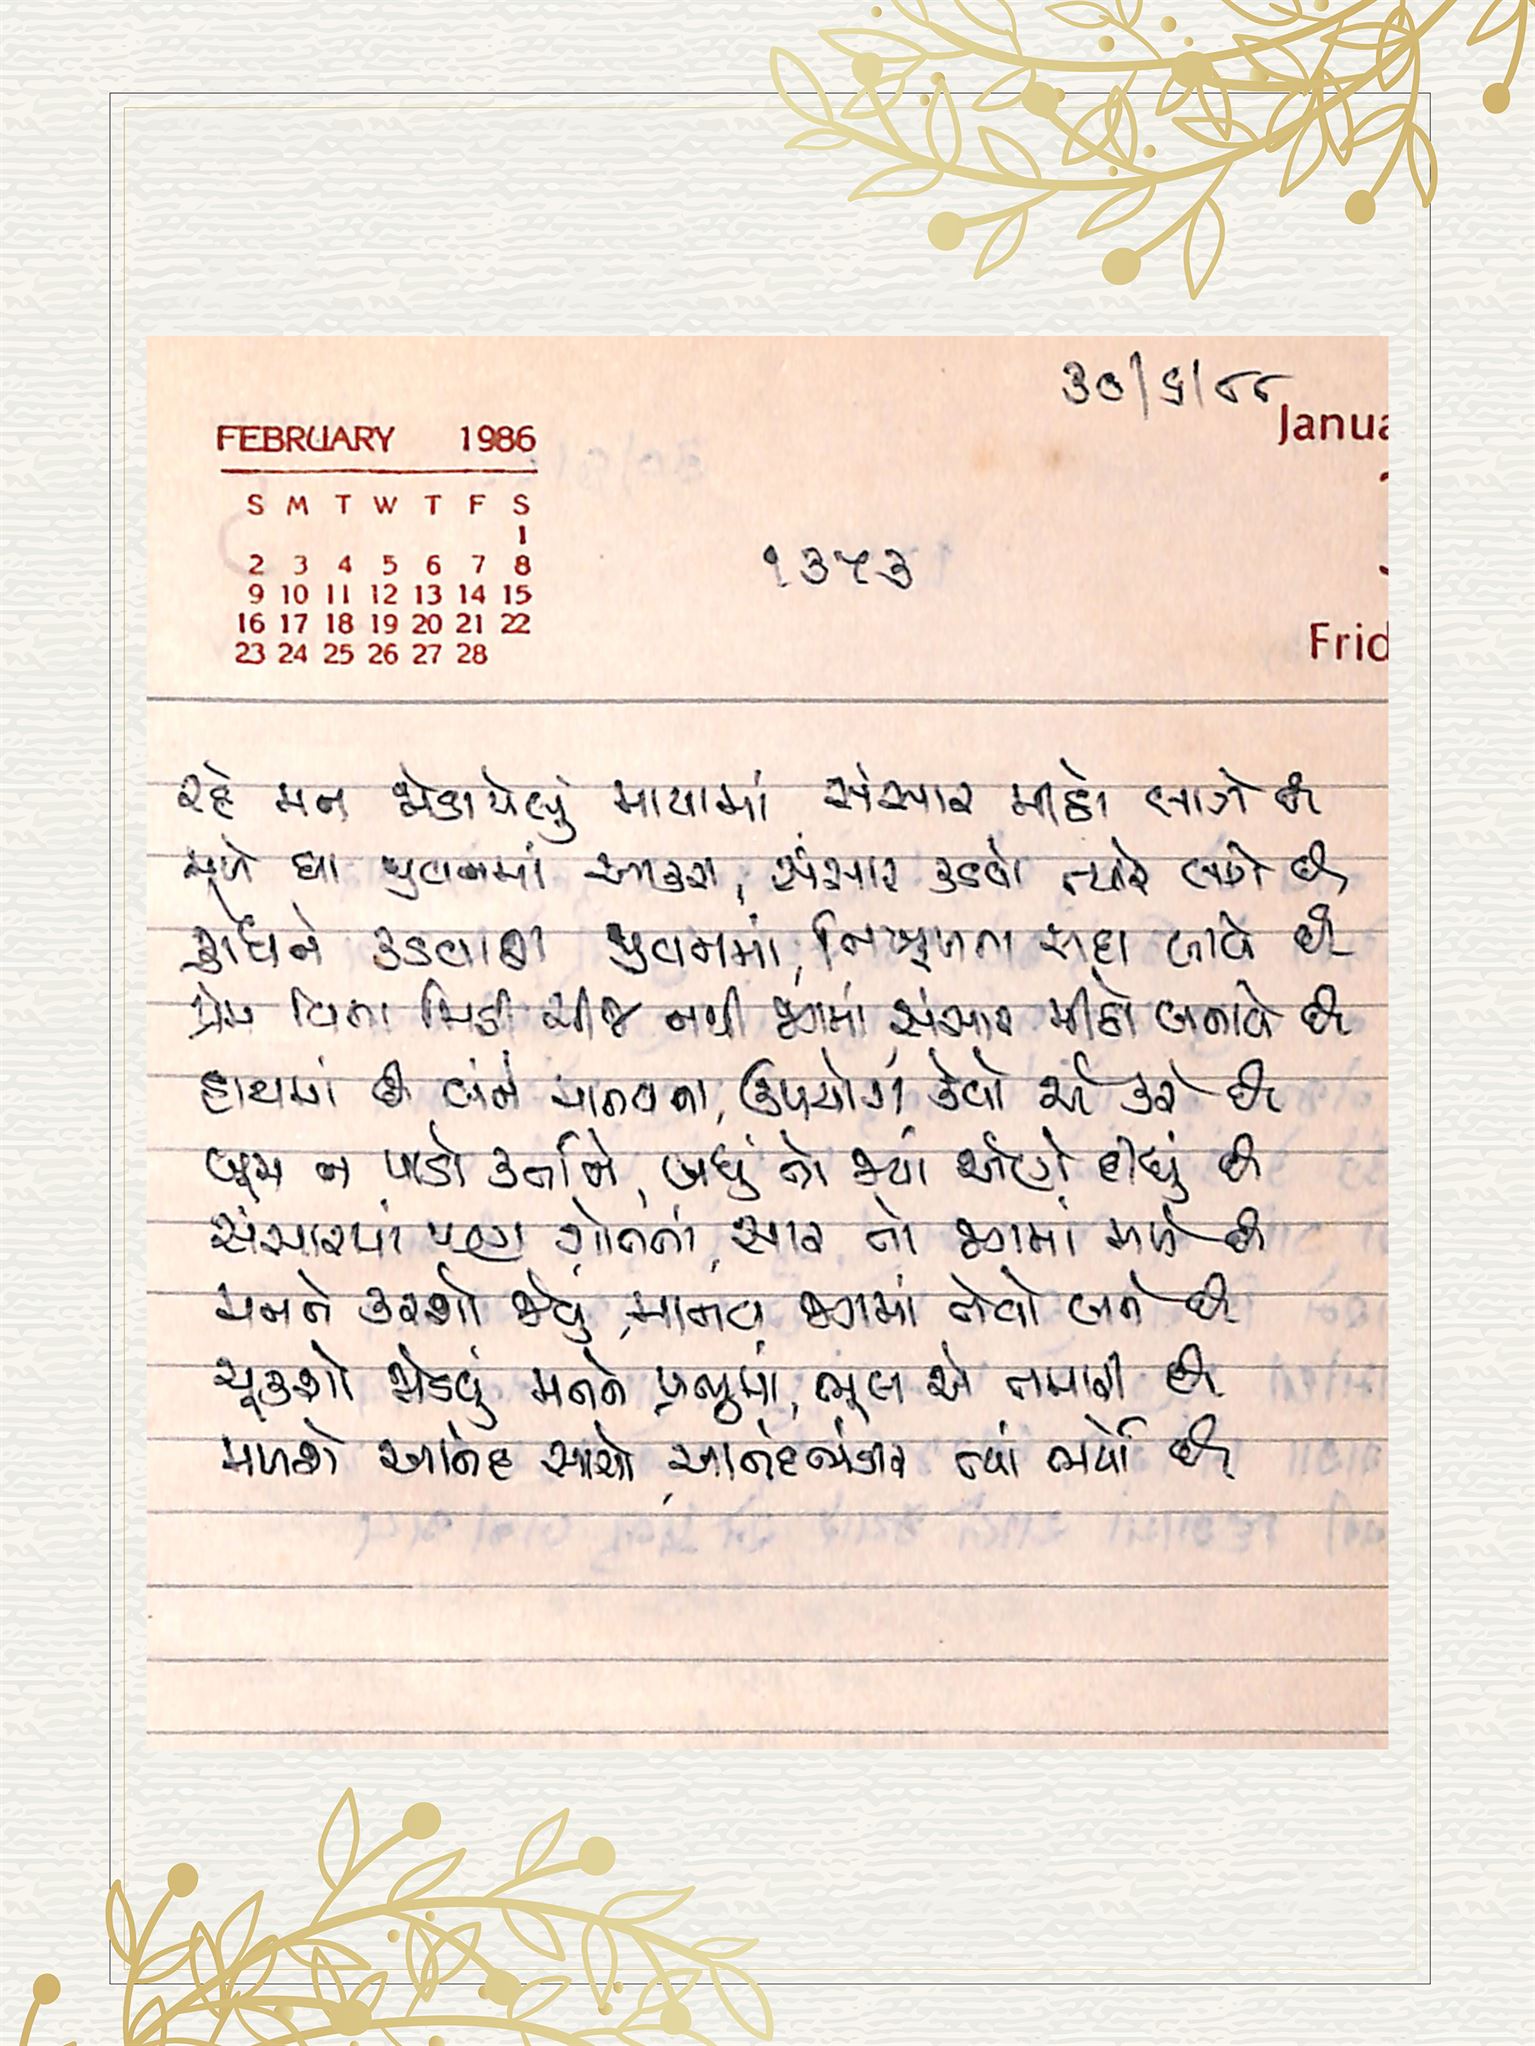 ૩૦/૬/૮૮
Janua
FEBRUARY 1986
S M T W T F S
1
2 3 4 5 6 7 8
૧૩૫૩
9 10 11 12 13 14 15
16 17 18 19 20 21 22
Frid
23 24 25 26 27 28
રહે મન જોડાયેલું માયામાં સંસાર મીઠો લાગે છે
મળે ઘા જીવનમાં આકરા, સંસાર કડવો ત્યારે લાગે છે
ક્રોધને કડવાશ જીવનમાં, નિષ્ફળતા સદા લાવે છે
પ્રેમ વિના મિઠી ચીજ નથી જગમાં, સંસાર મીઠો બનાવે છે
હાથમાં છે બંને માનવના, ઉપયોગ કેવો એ કરે છે
બૂમ ન પાડો કર્તાને, બધું તો જ્યાં એણે દીધું છે
સંસારમાં પણ ગોતતાં, સાર તો જગમાં મળે છે
મનને કરશો જેવું, માનવ જગમાં તેવો બને છે
ચૂકશો જોડવું મનને પ્રભુમાં, ભૂલ એ તમારી છે
મળશે આનંદ સાચો, આનંદભંડાર ત્યાં ભર્યો છે